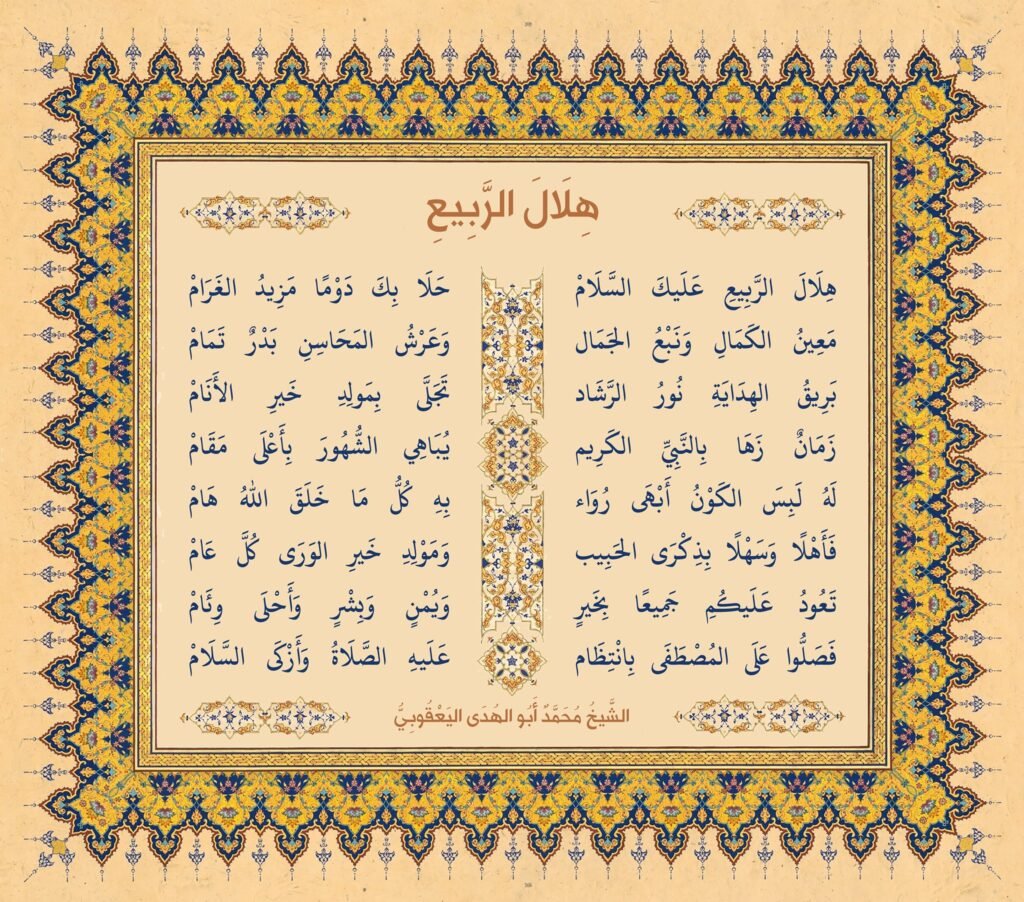 هِلَالَ الرَّبِيعِ
هِلَالَ الرَّبِيعِ عَلَيكَ السَّلَامْ حَلَا بِكَ دَوْمًا مَزِيدُ الغَرَامْ
مَعِينُ الكَمَالِ وَنَبْعُ الجَمَال وَعَرْشُ المَحَاسِنِ بَدْرٌ تَمَامْ
بَرِيقُ الهِدَايَةِ نُورُ الرَّشَاد تَجَلَّى بِمَولِدِ خَيرِ الأَنَامْ
زَمَانٌ زَهَا بِالنَّبِيِّ الكَرِيم يُبَاهِي الشُّهُورَ بِأَعْلَى مَقَامْ
لَهُ لَبِسَ الكَوْنُ أَبْهَى رُوَاء بِهِ كُلُّ مَا خَلَقَ اللهُ هَامْ
فَأَهْلًا وَسَهْلًا بِذِكْرَى الحَبِيب وَمَوْلِدِ خَيرِ الوَرَى كُلَّ عَامْ
تَعُودُ عَلَيكُمِ جَمِيعًا بِخَيرٍ وَيُمْنٍ وَبِشْرٍ وَأَحْلَى وِئَامْ
فَصَلُّوا عَلَى المُصْطَفَى بِانْتِظَام عَلَيهِ الصَّلَاةُ وَأَزْكَى السَّلَامْ
الشَّيخُ مُحَمَّدٌ أَبُو الهُدَى اليَعْقُوبِيُّ